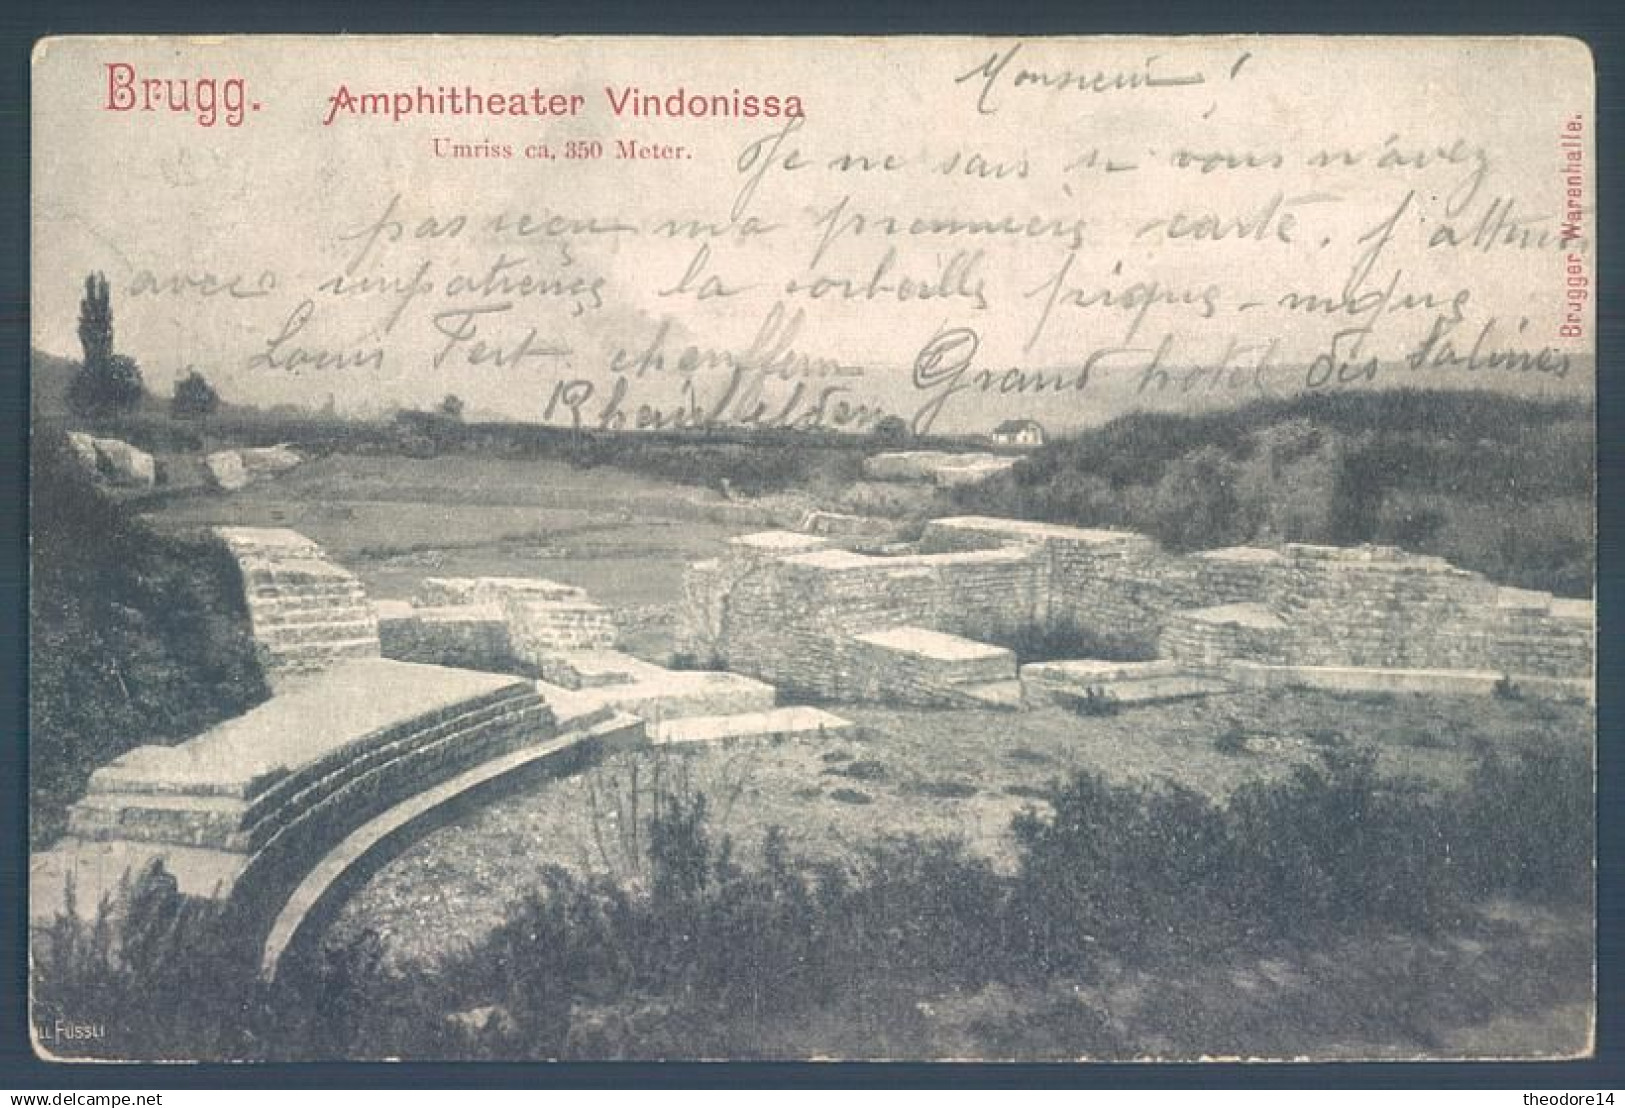 Brugg. Amphitheater Vindonissa
Umriss ca. 350 Meter.
Brugger Warenhalle.
Monsieur !
Je ne sais si vous n'avez
pas reçu ma première carte. J'attends
avec impatience la corbeille pique-nique
Louis Fert chauffeur Grand hotel des Salines
Rheinfelden
LL FÜSSLI
www.delcampe.net
theodore14